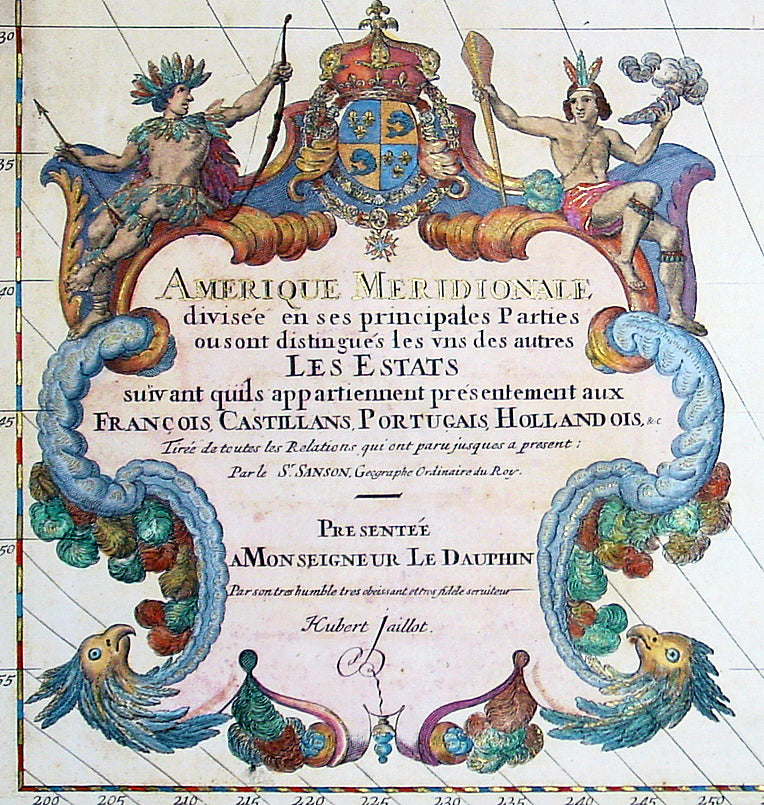 AMERIQUE MERIDIONALE
divisée en ses principales Parties
ou sont distingués les vns des autres
LES ESTATS
suivant quils appartiennent présentement aux
FRANÇOIS, CASTILLANS, PORTUGAIS, HOLLANDOIS, &c
Tirée de toutes les Relations qui ont paru jusques a present :
Par le Sr. SANSON, Geographe Ordinaire du Roy.
PRESENTÉE
A MONSEIGNEUR LE DAUPHIN
Par son tres humble tres obeissant et tres fidele serviteur
Hubert Jaillot.
30
35
40
45
50
55
200 205 210 215 220 225 230 235 240 245 250